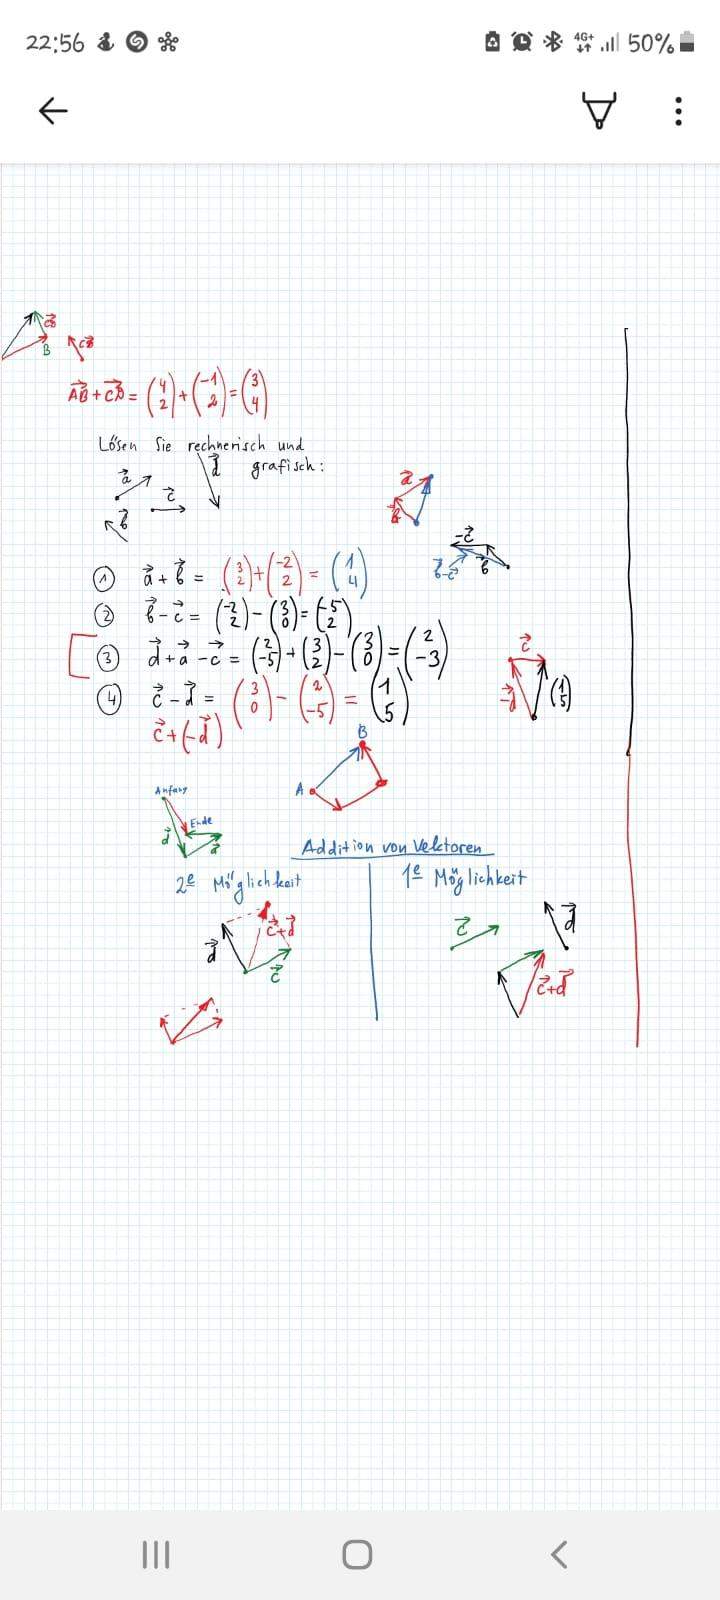 22:56 4G+ 50%
CB
B CB
AB + CB = (4 2) + (-1 2) = (3 4)
Lösen Sie rechnerisch und
grafisch:
d
a c
b
a
b
-c
b-c b
① a + b = (3 2) + (-2 2) = (1 4)
② b - c = (-2 2) - (3 0) = (-5 2)
③ d + a - c = (2 -5) + (3 2) - (3 0) = (2 -3)
④ c - d = (3 0) - (2 -5) = (1 5)
c + (-d)
c
-d (1 5)
B
A
Anfang
Ende
d a
Addition von Vektoren
2e Möglichkeit 1e Möglichkeit
d c+d c
c d
c+d